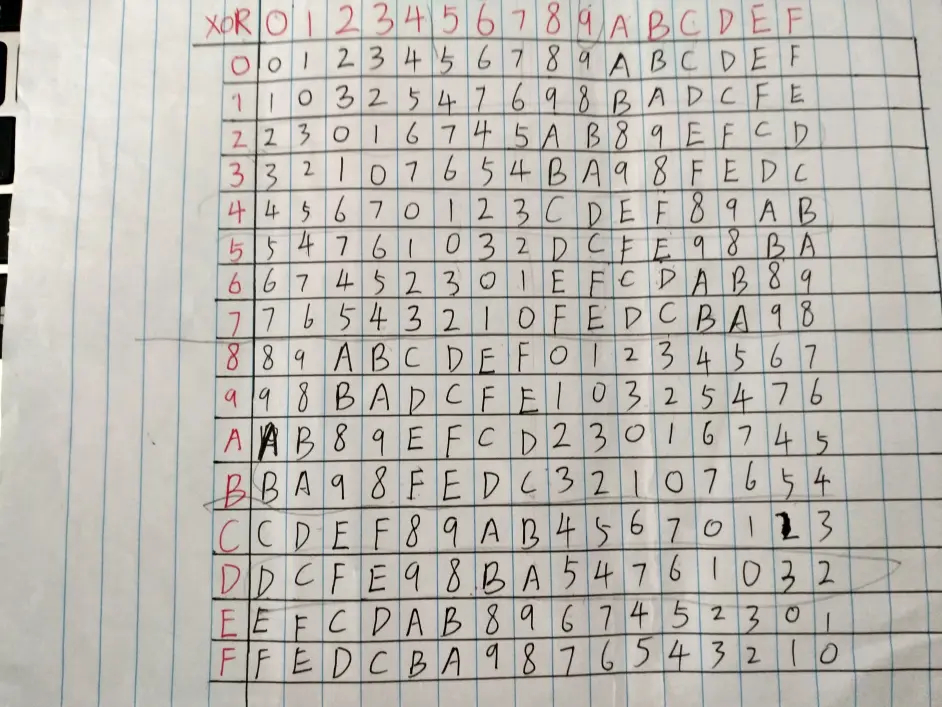 XOR 0 1 2 3 4 5 6 7 8 9 A B C D E F
0 0 1 2 3 4 5 6 7 8 9 A B C D E F
1 1 0 3 2 5 4 7 6 9 8 B A D C F E
2 2 3 0 1 6 7 4 5 A B 8 9 E F C D
3 3 2 1 0 7 6 5 4 B A 9 8 F E D C
4 4 5 6 7 0 1 2 3 C D E F 8 9 A B
5 5 4 7 6 1 0 3 2 D C F E 9 8 B A
6 6 7 4 5 2 3 0 1 E F C D A B 8 9
7 7 6 5 4 3 2 1 0 F E D C B A 9 8
8 8 9 A B C D E F 0 1 2 3 4 5 6 7
9 9 8 B A D C F E 1 0 3 2 5 4 7 6
A A B 8 9 E F C D 2 3 0 1 6 7 4 5
B B A 9 8 F E D C 3 2 1 0 7 6 5 4
C C D E F 8 9 A B 4 5 6 7 0 1 2 3
D D C F E 9 8 B A 5 4 7 6 1 0 3 2
E E F C D A B 8 9 6 7 4 5 2 3 0 1
F F E D C B A 9 8 7 6 5 4 3 2 1 0